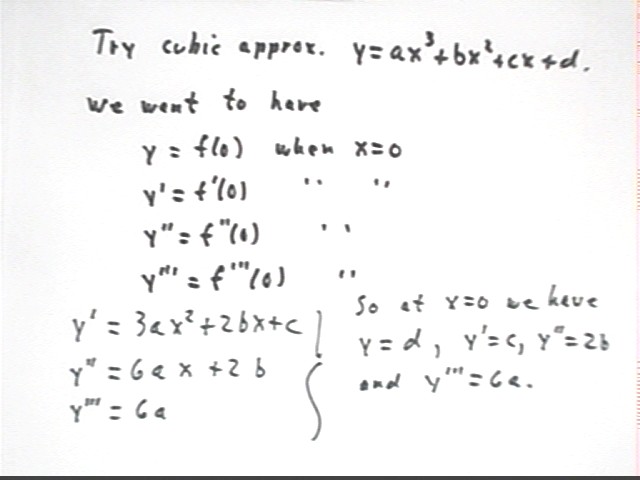 Try cubic approx. y=ax³+bx²+cx+d.
We want to have
y = f(0) when x=0
y' = f'(0) " "
y" = f"(0) " "
y''' = f'''(0) "
y' = 3ax²+2bx+c
y" = 6ax+2b
y''' = 6a
So at x=0 we have
y=d, y'=c, y"=2b
and y'''=6a.